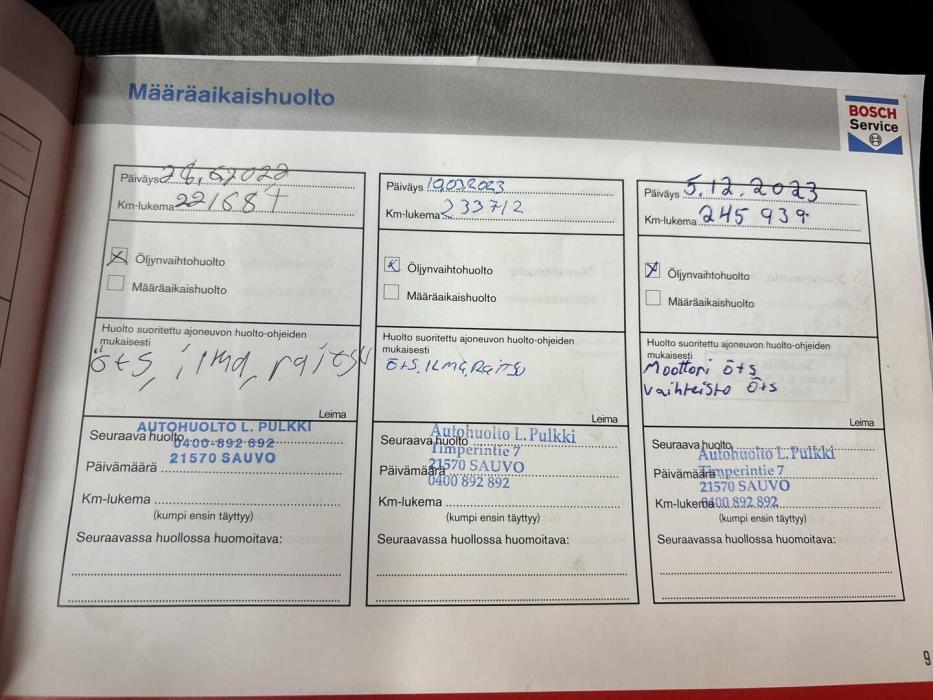 Määräaikaishuolto
BOSCH
Service
Päiväys
Km-lukema 221687
Öljynvaihtohuolto
Määräaikaishuolto
Huolto suoritettu ajoneuvon huolto-ohjeiden
mukaisesti
ö+s, ilma, raitisi
Leima
AUTOHUOLTO L. PULKKI
Seuraava huolto
0400-892 892
21570 SAUVO
Päivämäärä
Km-lukema
(kumpi ensin täyttyy)
Seuraavassa huollossa huomoitava:
Päiväys 10.03.2023
Km-lukema 233712
Öljynvaihtohuolto
Määräaikaishuolto
Huolto suoritettu ajoneuvon huolto-ohjeiden
mukaisesti
ö+s, ILMA, RAITSU
Leima
Autohuolto L. Pulkki
Seuraava huolto
Timperintie 7
21570 SAUVO
Päivämäärä
0400 892 892
Km-lukema
(kumpi ensin täyttyy)
Seuraavassa huollossa huomoitava:
Päiväys 5.12.2023
Km-lukema 245 939
Öljynvaihtohuolto
Määräaikaishuolto
Huolto suoritettu ajoneuvon huolto-ohjeiden
mukaisesti
Moottori ö+s
vaihteisto ö+s
Leima
Seuraava huolto
Autohuolto L. Pulkki
Päivämäärä
Timperintie 7
21570 SAUVO
Km-lukema
0400 892 892
(kumpi ensin täyttyy)
Seuraavassa huollossa huomoitava:
9